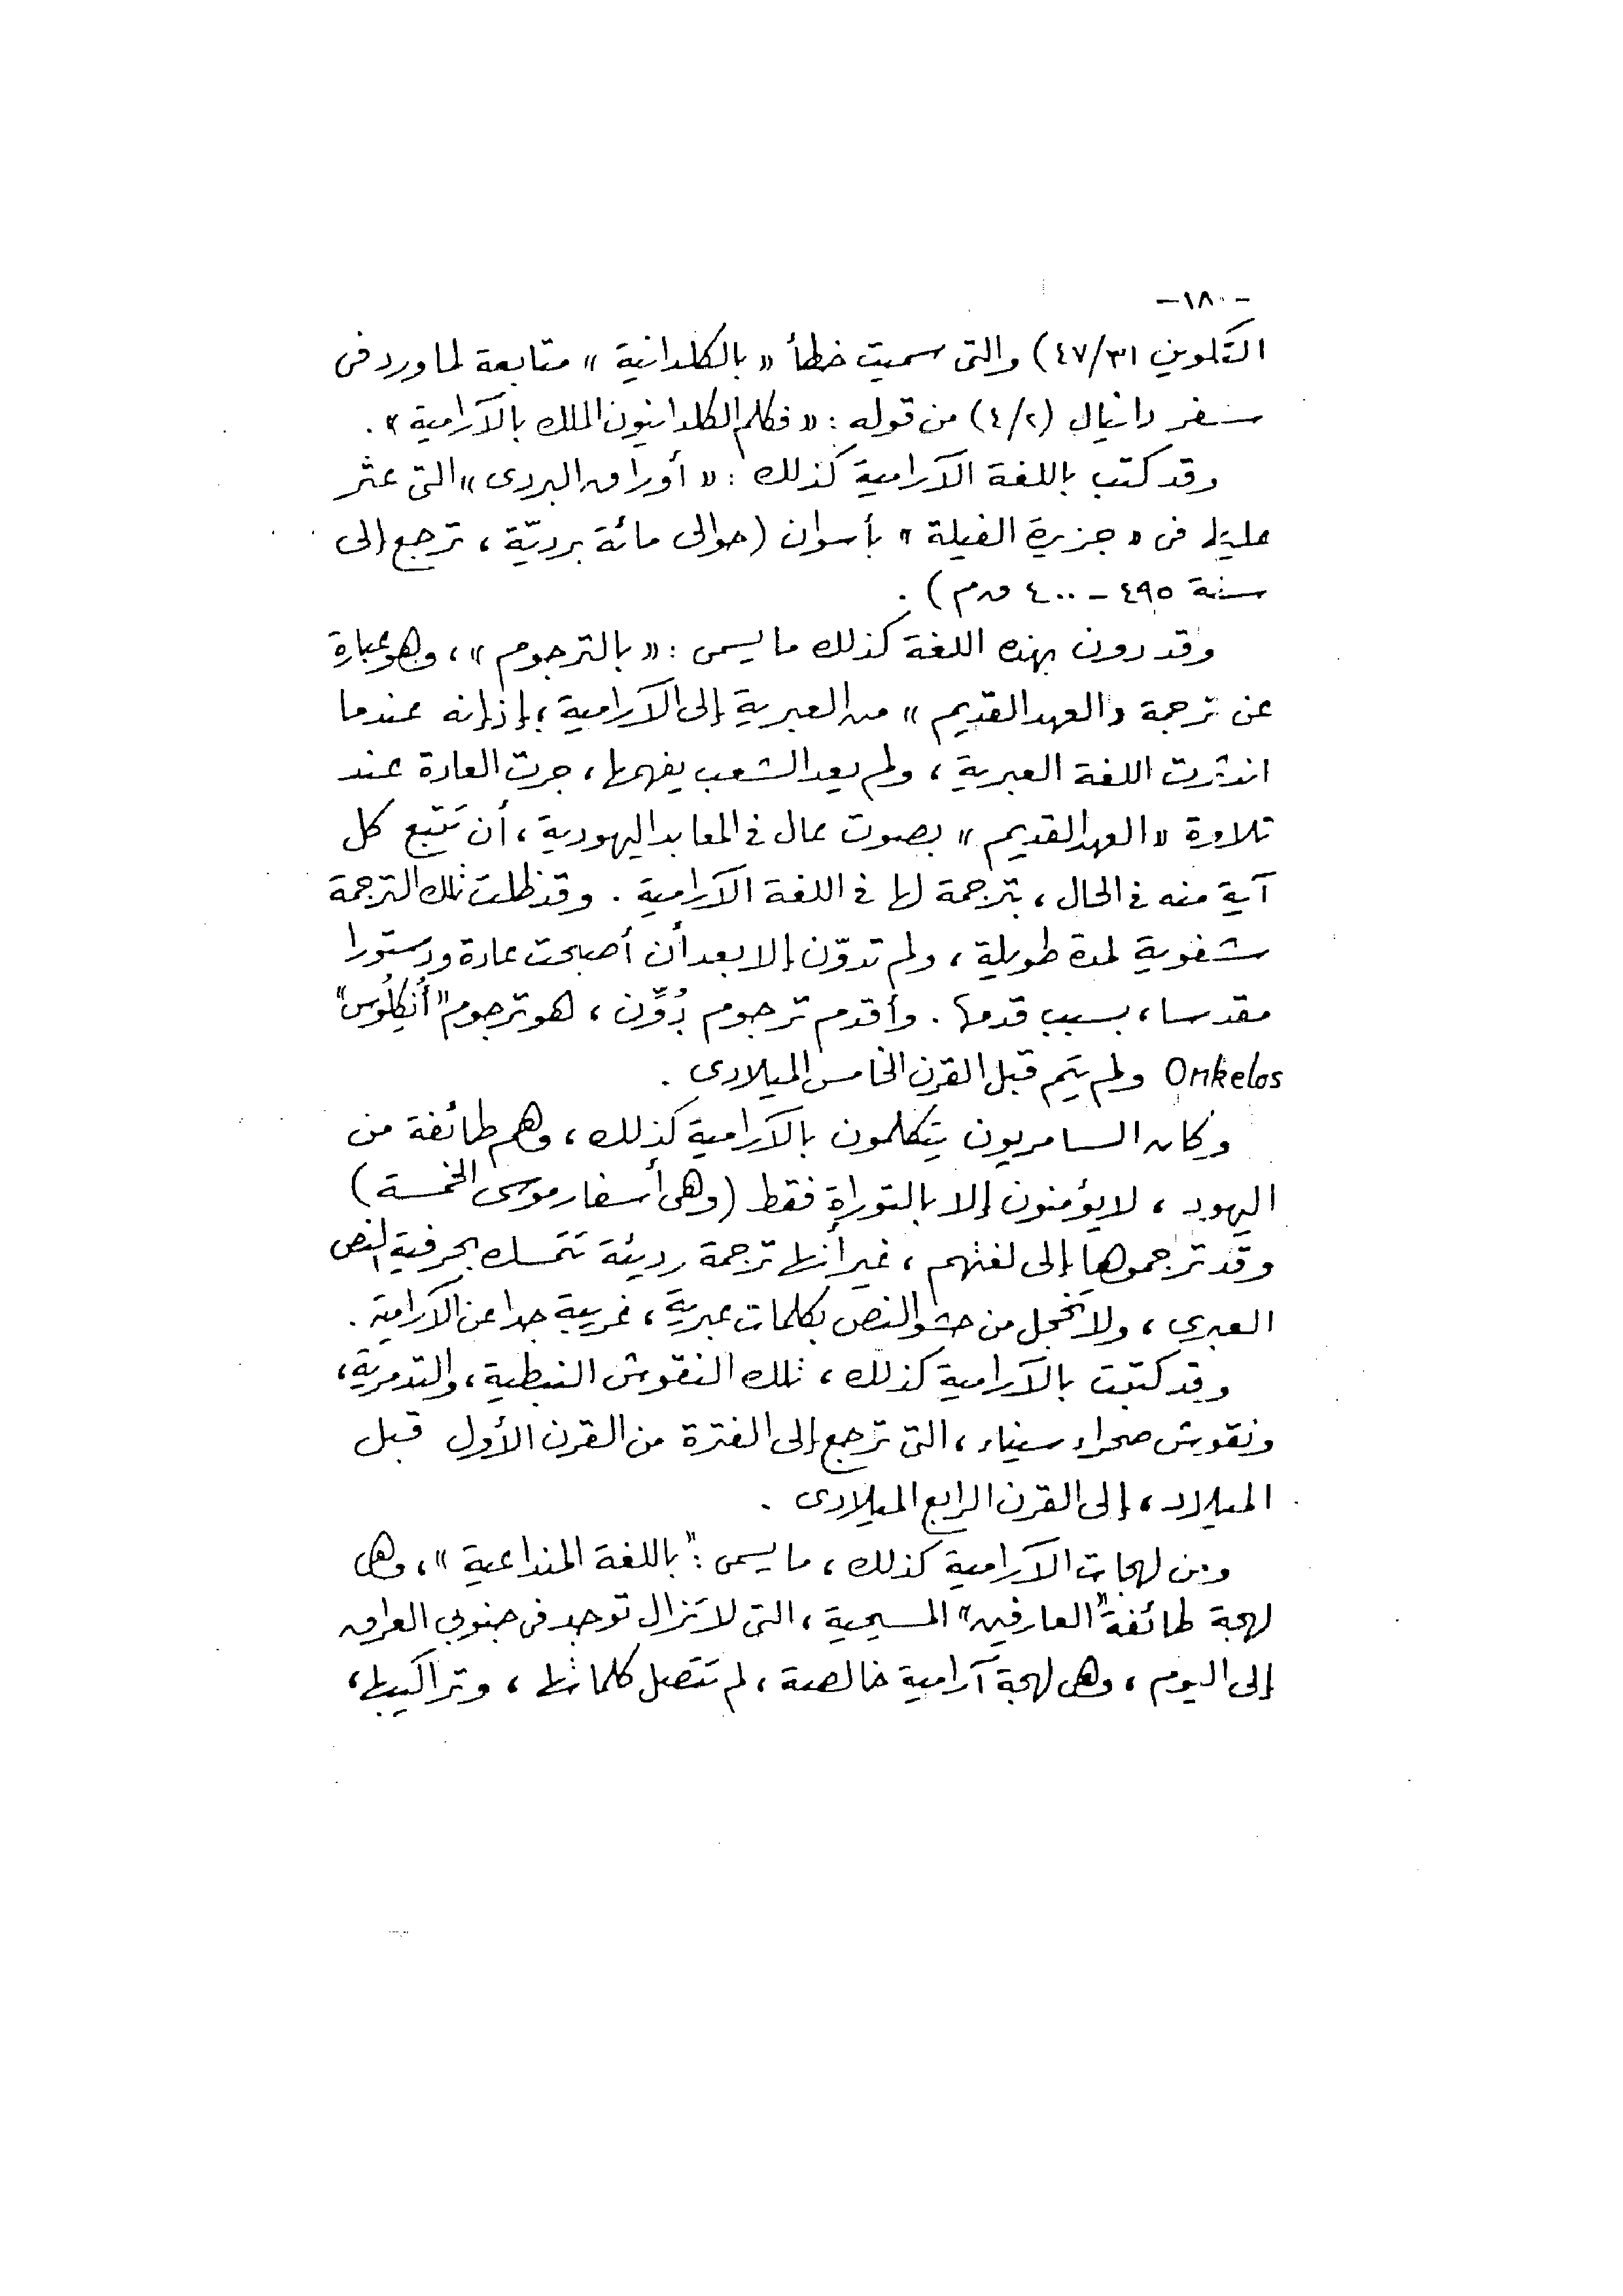 -١٨٠-
التكوين ٤٧/٣١) والتى سميت خطأ «بالكلدانية» متابعة لما ورد فى
سفر دانيال (٤/٢) من قوله: «فكلم الكلدانيون الملك بالآرامية».
وقد كتب باللغة الآرامية كذلك: «أوراق البردى» التى عثر
عليها فى «جزيرة الفيلة» بأسوان (حوالى مائة برديّة، ترجع إلى
سنة ٤٩٥ - ٤٠٠ ق م).
وقد دون بهذه اللغة كذلك ما يسمى: «بالترجوم»، وهو عبارة
عن ترجمة «العهد القديم» من العبرية إلى الآرامية؛ إذ إنه عندما
اندثرت اللغة العبرية، ولم يعد الشعب يفهمها، جرت العادة عند
تلاوة «العهد القديم» بصوت عال فى المعابد اليهودية، أن تَتْبع كل
آية منه فى الحال، بترجمة لها فى اللغة الآرامية. وقد ظلت تلك الترجمة
شفوية لمدة طويلة، ولم تدوّن إلا بعد أن أصبحت عادة ودستورا
مقدسا، بسبب قدمها. وأقدم ترجوم دُوِّن، هو ترجوم "أُنكِلُوس"
Onkelos ولم يتم قبل القرن الخامس الميلادى.
وكان السامريون يتكلمون بالآرامية كذلك، وهم طائفة من
اليهود، لا يؤمنون إلا بالتوراة فقط (وهى أسفار موسى الخمسة)
وقد ترجموها إلى لغتهم، غير أنها ترجمة رديئة تتمسك بحرفية النص
العبرى، ولا تخجل من حشو النص بكلمات عبرية، غريبة جدا عن الآرامية.
وقد كتبت بالآرامية كذلك، تلك النقوش النبطية، والتدمرية،
ونقوش صحراء سيناء، التى ترجع إلى الفترة من القرن الأول قبل
الميلاد، إلى القرن الرابع الميلادى.
ومن لهجات الآرامية كذلك، ما يسمى: "باللغة المنداعية»، وهى
لهجة طائفة "العارفين» المسيحية، التى لا تزال توجد فى جنوبى العراق
إلى اليوم، وهى لهجة آرامية خالصة، لم تتصل كلماتها، وتراكيبها،